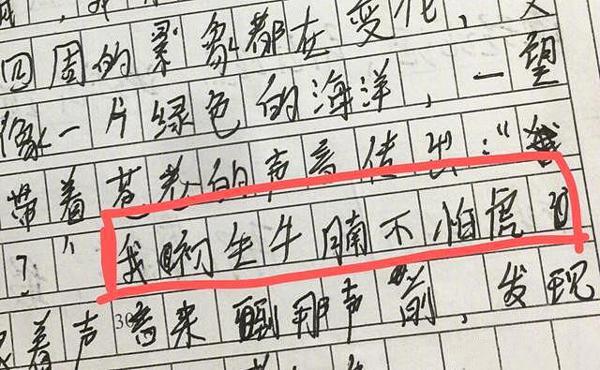 四周的景象都在变化,
像一片绿色的海洋,一望
带着苍老的声音传出:“
?”我初生牛腩不怕虎
着声音来到那声前,发现